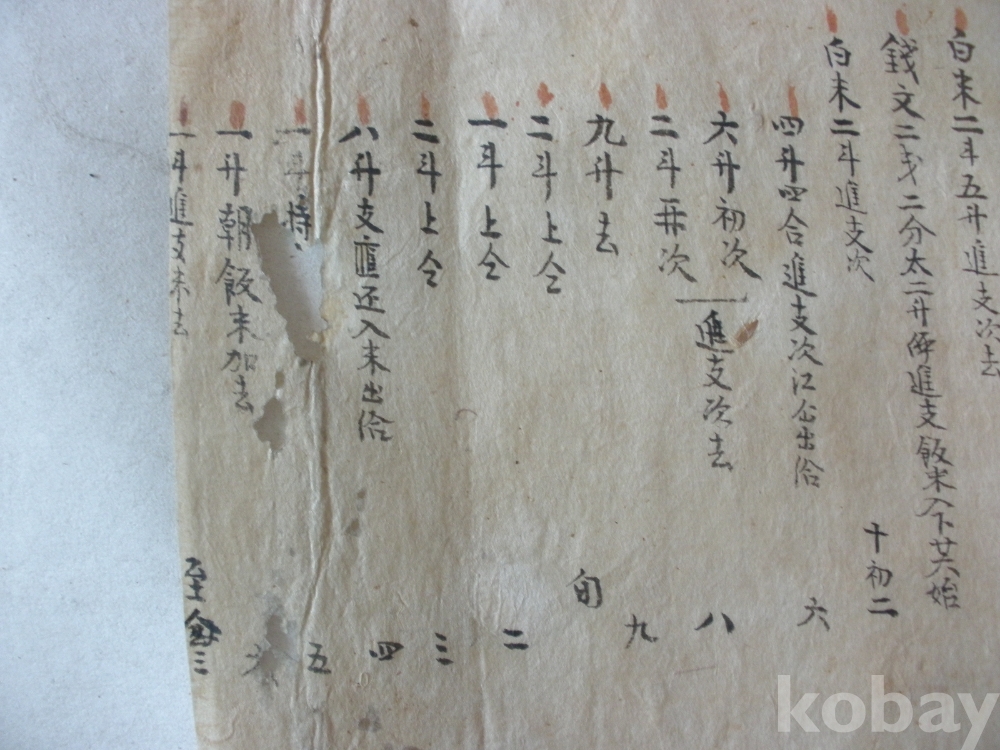 白米二斗五升進支次去
錢文二戔二分太二升價進支飯米入下廿六始
白米二斗進支次 十初二
四升四合進支次江仚出給 六
六升初次 八
二斗再次 進支次去 九
九升去 旬
二斗上仝 二
一斗上仝 三
二斗上仝 四
八升支䆠还入米出給 五
一斗
一升朝飯米加去 六
一斗進支米去 至 三
kobay